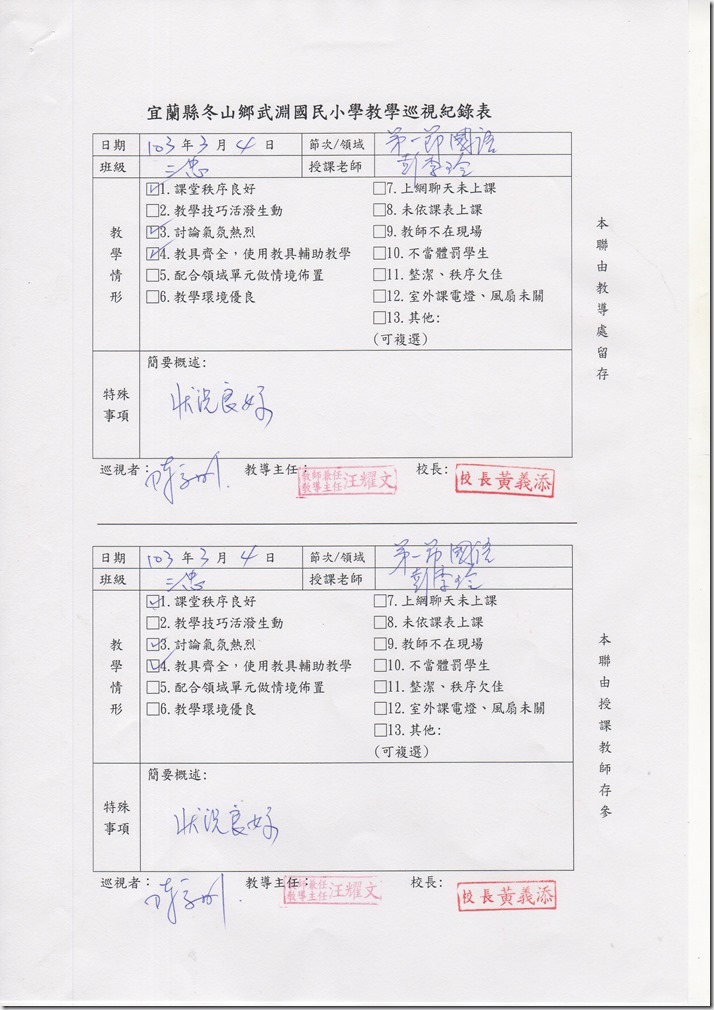 宜蘭縣冬山鄉武淵國民小學教學巡視紀錄表
日期 103 年 3 月 4 日 節次/領域 第一節國語
班級 三忠 授課老師 彭李玲
教學情形
☑1. 課堂秩序良好 □7. 上網聊天未上課
□2. 教學技巧活潑生動 □8. 未依課表上課
☑3. 討論氣氛熱烈 □9. 教師不在現場
☑4. 教具齊全，使用教具輔助教學 □10. 不當體罰學生
□5. 配合領域單元做情境佈置 □11. 整潔、秩序欠佳
□6. 教學環境優良 □12. 室外課電燈、風扇未關
□13. 其他:
(可複選)
特殊事項
簡要概述:
狀況良好
巡視者： 教導主任： 教師兼任教導主任 汪耀文 校長: 校長 黃義添
本聯由教導處留存
日期 103 年 3 月 4 日 節次/領域 第一節國語
班級 三忠 授課老師 彭李玲
教學情形
☑1. 課堂秩序良好 □7. 上網聊天未上課
□2. 教學技巧活潑生動 □8. 未依課表上課
☑3. 討論氣氛熱烈 □9. 教師不在現場
☑4. 教具齊全，使用教具輔助教學 □10. 不當體罰學生
□5. 配合領域單元做情境佈置 □11. 整潔、秩序欠佳
□6. 教學環境優良 □12. 室外課電燈、風扇未關
□13. 其他:
(可複選)
特殊事項
簡要概述:
狀況良好
巡視者： 教導主任： 教師兼任教導主任 汪耀文 校長: 校長 黃義添
本聯由授課教師存參